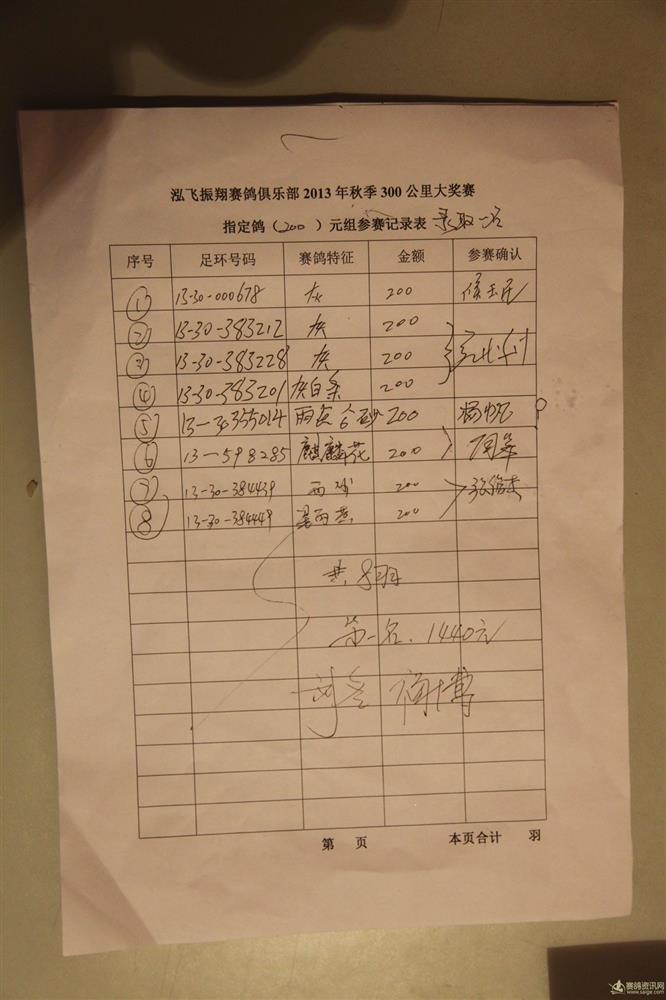 泓飞振翔赛鸽俱乐部 2013 年秋季 300 公里大奖赛
指定鸽（200）元组参赛记录表 录取一名
序号 足环号码 赛鸽特征 金额 参赛确认
① 13-30-000678 灰 200 侯玉民
② 13-30-383212 灰 200
③ 13-30-383228 灰 200
④ 13-30-383201 灰白条 200
⑤ 13-30355014 雨点 200
⑥ 13-598285 麒麟花 200
⑦ 13-30-384439 200
⑧ 13-30-384449 200
共8羽
第一名. 1440元
第 页 本页合计 羽
赛鸽资讯网
www.saige.com